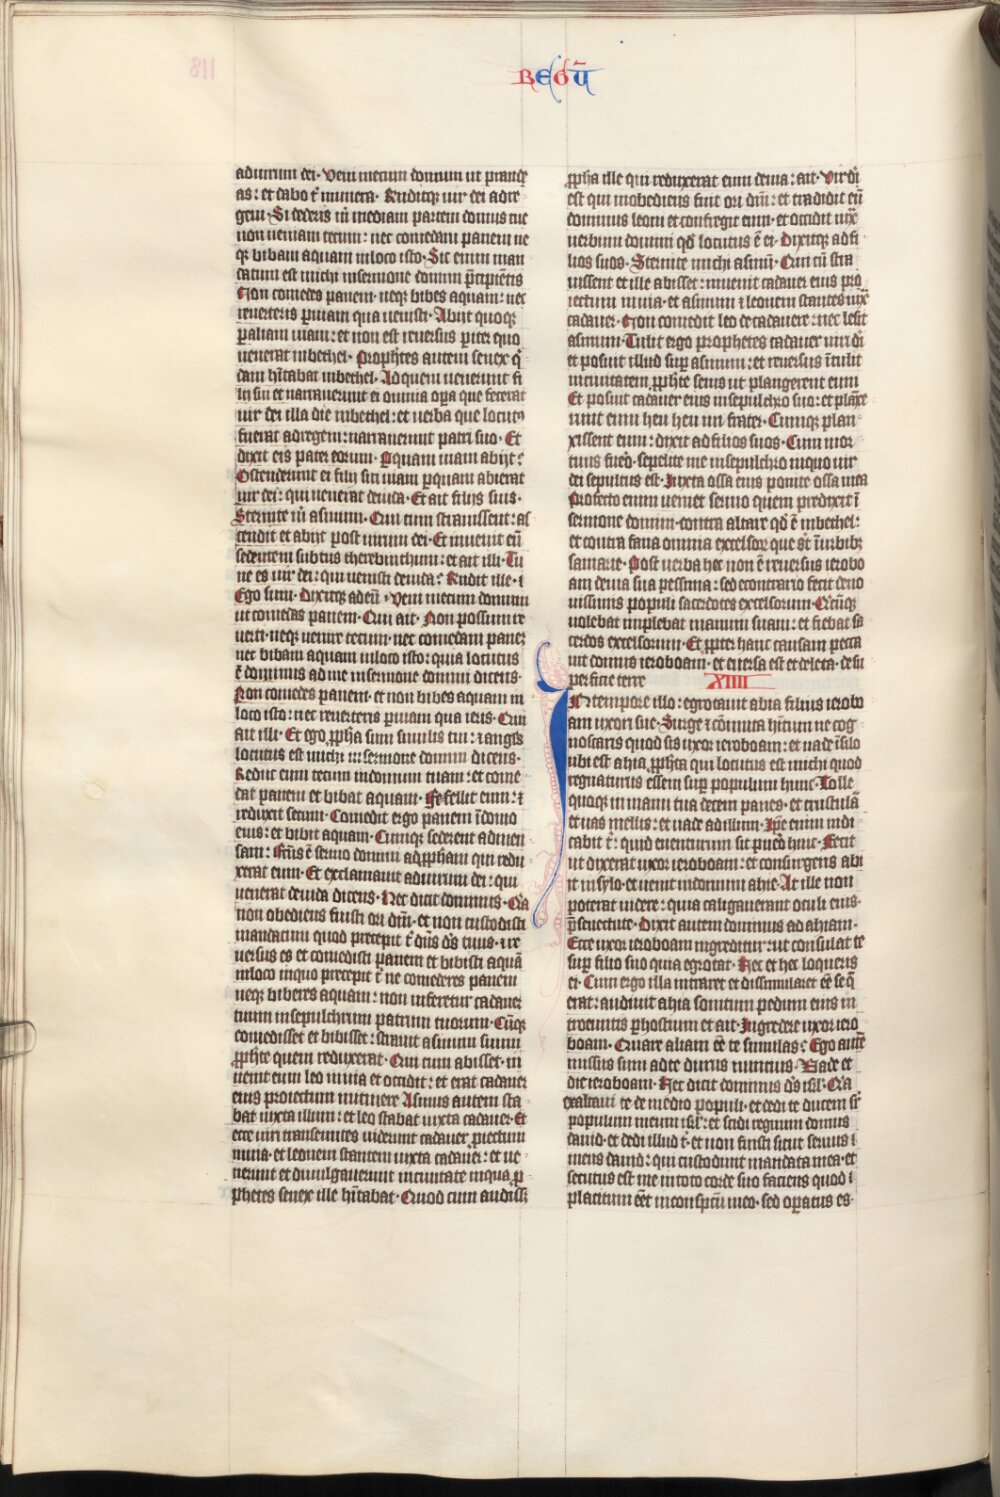 REGU̅
ad uirum dei· veni mecum domum ut prande
as: et dabo t̅ munera· Rn̅ditq; uir dei ad re
gem· Si dederis m̅ mediam partem domus tue
non ueniam tecum: nec comedam panem ne
q; bibam aquam in loco isto· Sic enim man
datum est michi in sermone domini p̅cipientis
Non comedes panem· neq; bibes aquam: nec
reuerteris p̲ uiam qua uenisti· Abijt quoq;
p̲ aliam uiam: et non est reuersus p̲ iter quo
uenerat in bethel· Prophetes autem senex q̅
dam h̅itabat in bethel· Ad quem uenerunt fi
lij sui et narrauerunt ei omnia op̲a que fecerat
uir dei illa die in bethel: et uerba que locutus
fuerat ad regem: narrauerunt patri suo· Et
dixit eis pater eorum· P̲ quam uiam abijt:
Ostenderunt ei filij sui uiam p̲ quam abierat
uir dei: qui uenerat de iuda· Et ait filijs suis·
Sternite m̅ asinum· Qui cum strauissent: as
cendit et abijt post uirum dei· Et inuenit eu̅
sedentem subtus therebinthum: et ait illi· Tu
ne es uir dei: qui uenisti de iuda: Rn̅dit ille· i
Ego sum· Dixitq; ad eu̅· veni mecum domum
ut comedas panem· Qui ait· Non possum re
uerti· neq; uenire tecum· nec comedam panem
nec bibam aquam in loco isto: quia locutus
e̅ dominus ad me in sermone domini dicens·
Non comedes panem· et non bibes aquam in
loco isto: nec reuerteris p̲ uiam qua ieris· Qui
ait illi· Et ego p̲pha sum similis tui: ⁊ angl's
locutus est michi in sermone domini dicens·
Reduc eum tecum in domum tuam: et come
dat panem et bibat aquam· Fefellit eum: ⁊
reduxit secum· Comedit ergo panem i̅ domo
eius: et bibit aquam· Cumq; sederent ad men
sam: fc̅us e̅ sermo domini ad p̲pham qui redu
xerat eum· Et exclamauit ad uirum dei: qui
uenerat de iuda dicens· Hec dicit dominus· Q̅a
non obediens fuisti ori dn̅i· et non custodisti
mandatum quod precepit t̅ dn̅s d̅s tuus· ⁊ re
uersus es et comedisti panem et bibisti aqua̅
in loco in quo precepit t̅ ne comederes panem
neq; biberes aquam: non inferetur cadauer
tuum in sepulchrum patrum tuorum· Cu̅q;
comedisset et bibisset: strauit asinum suum
p̲phe̅te quem reduxerat· Qui cum abisset· in
uenit eum leo in uia et occidit: et erat cadauer
eius proiectum in itinere Asinus autem sta
bat iuxta illum: et leo stabat iuxta cadauer· Et
ecce uiri transeuntes uiderunt cadauer p̲iectum
in uia· et leonem stantem iuxta cadauer: et ue
nerunt et diuulgauerunt in ciuitate in qua p̲
phetes senex ille h̅itabat· Quod cum audiss;
p̲pha ille qui reduxerat eum de uia: ait· Vir di̅
est qui inobediens fuit ori dn̅i: et tradidit eu̅
dominus leoni et confregit eum· et occidit iux̅
uerbum domini qd̅ locutus e̅ ei· Dixitq; ad fi
lios suos· Sternite michi asinu̅· Qui cu̅ stra
uissent et ille abisset: inuenit cadauer eius pro
iectum in uia· et asinum ⁊ leonem stantes iux̅
cadauer· Non comedit leo de cadauere: nec lesit
asinum· Tulit ergo prophetes cadauer uiri di̅
et posuit illud sup̲ asinum: et reuersus i̅tulit
in ciuitatem p̲phe̅te senis ut plangerent eum
Et posuit cadauer eius in sepulchro suo: et pla̅xe
runt eum heu heu mi frater· Cumq; plan
xissent eum: dixit ad filios suos· Cum mor
tuus fue̅o· sepelite me in sepulchro in quo uir
dei sepultus est· Iuxta ossa eius ponite ossa mea
Profecto enim ueniet sermo quem predixit i̅
sermone domini· contra altare qd̅ e̅ in bethel:
et contra fana omnia excelsor; que s̅t i̅ urbib;
samarie· Post uerba hec non e̅ reuersus ierobo
am de uia sua pessima: sed econtrario fecit de no
uissimis populi sacerdotes excelsorum· Q̅cu̅q;
uolebat implebat manum suam: et fiebat sa
cerdos excelsorum· Et p̲pter hanc causam pecca
uit domus ieroboam· et euersa est et deleta· de su
perficie terre XIIII
In tempore illo: egrotauit abia filius ierobo
am uxori sue· Surge ⁊ co̅muta h̅itum ne cog
noscaris quod sis uxor ieroboam: et uade i̅ silo
ubi est ahia p̲pheta qui locutus est michi quod
regnaturus essem sup̲ populum hunc· Tolle
quoq; in manu tua decem panes· et crustula̅
et uas mellis: et uade ad illum· Ip̅e enim indi
cabit t̅: quid euenturum sit puero huic· Fecit
ut dixerat uxor ieroboam: et consurgens abi
it in sylo· et uenit in domum ahie· At ille non
poterat uidere: quia caligauerant oculi eius·
p̅ senectute· Dixit autem dominus ad ahyam·
Ecce uxor ieroboam ingreditur: ut consulat te
sup̲ filio suo quia egrotat· Hec et hec loqueris
ei· Cum ergo illa intraret et dissimularet e̅e se q̅
erat: audiuit ahia sonitum pedum eius in
troeuntis p̲ hostium et ait· Ingredere uxor iero
boam· Quare aliam e̅e te simulas: Ego aute̅
missus sum ad te durus nuntius· Vade et
dic ieroboam· Hec dicit dominus d̅s isl̅· Q̅a
exaltaui te de medio populi· et dedi te ducem s̅r
populum meum isr̅l: et scidi regnum domus
dauid· et dedi illud t̅· et non fuisti sicut seruus
meus dauid: qui custodiuit mandata mea· et
secutus est me in toto corde suo faciens quod
placitum e̅et in conspc̅u meo· sed op̲atus es·